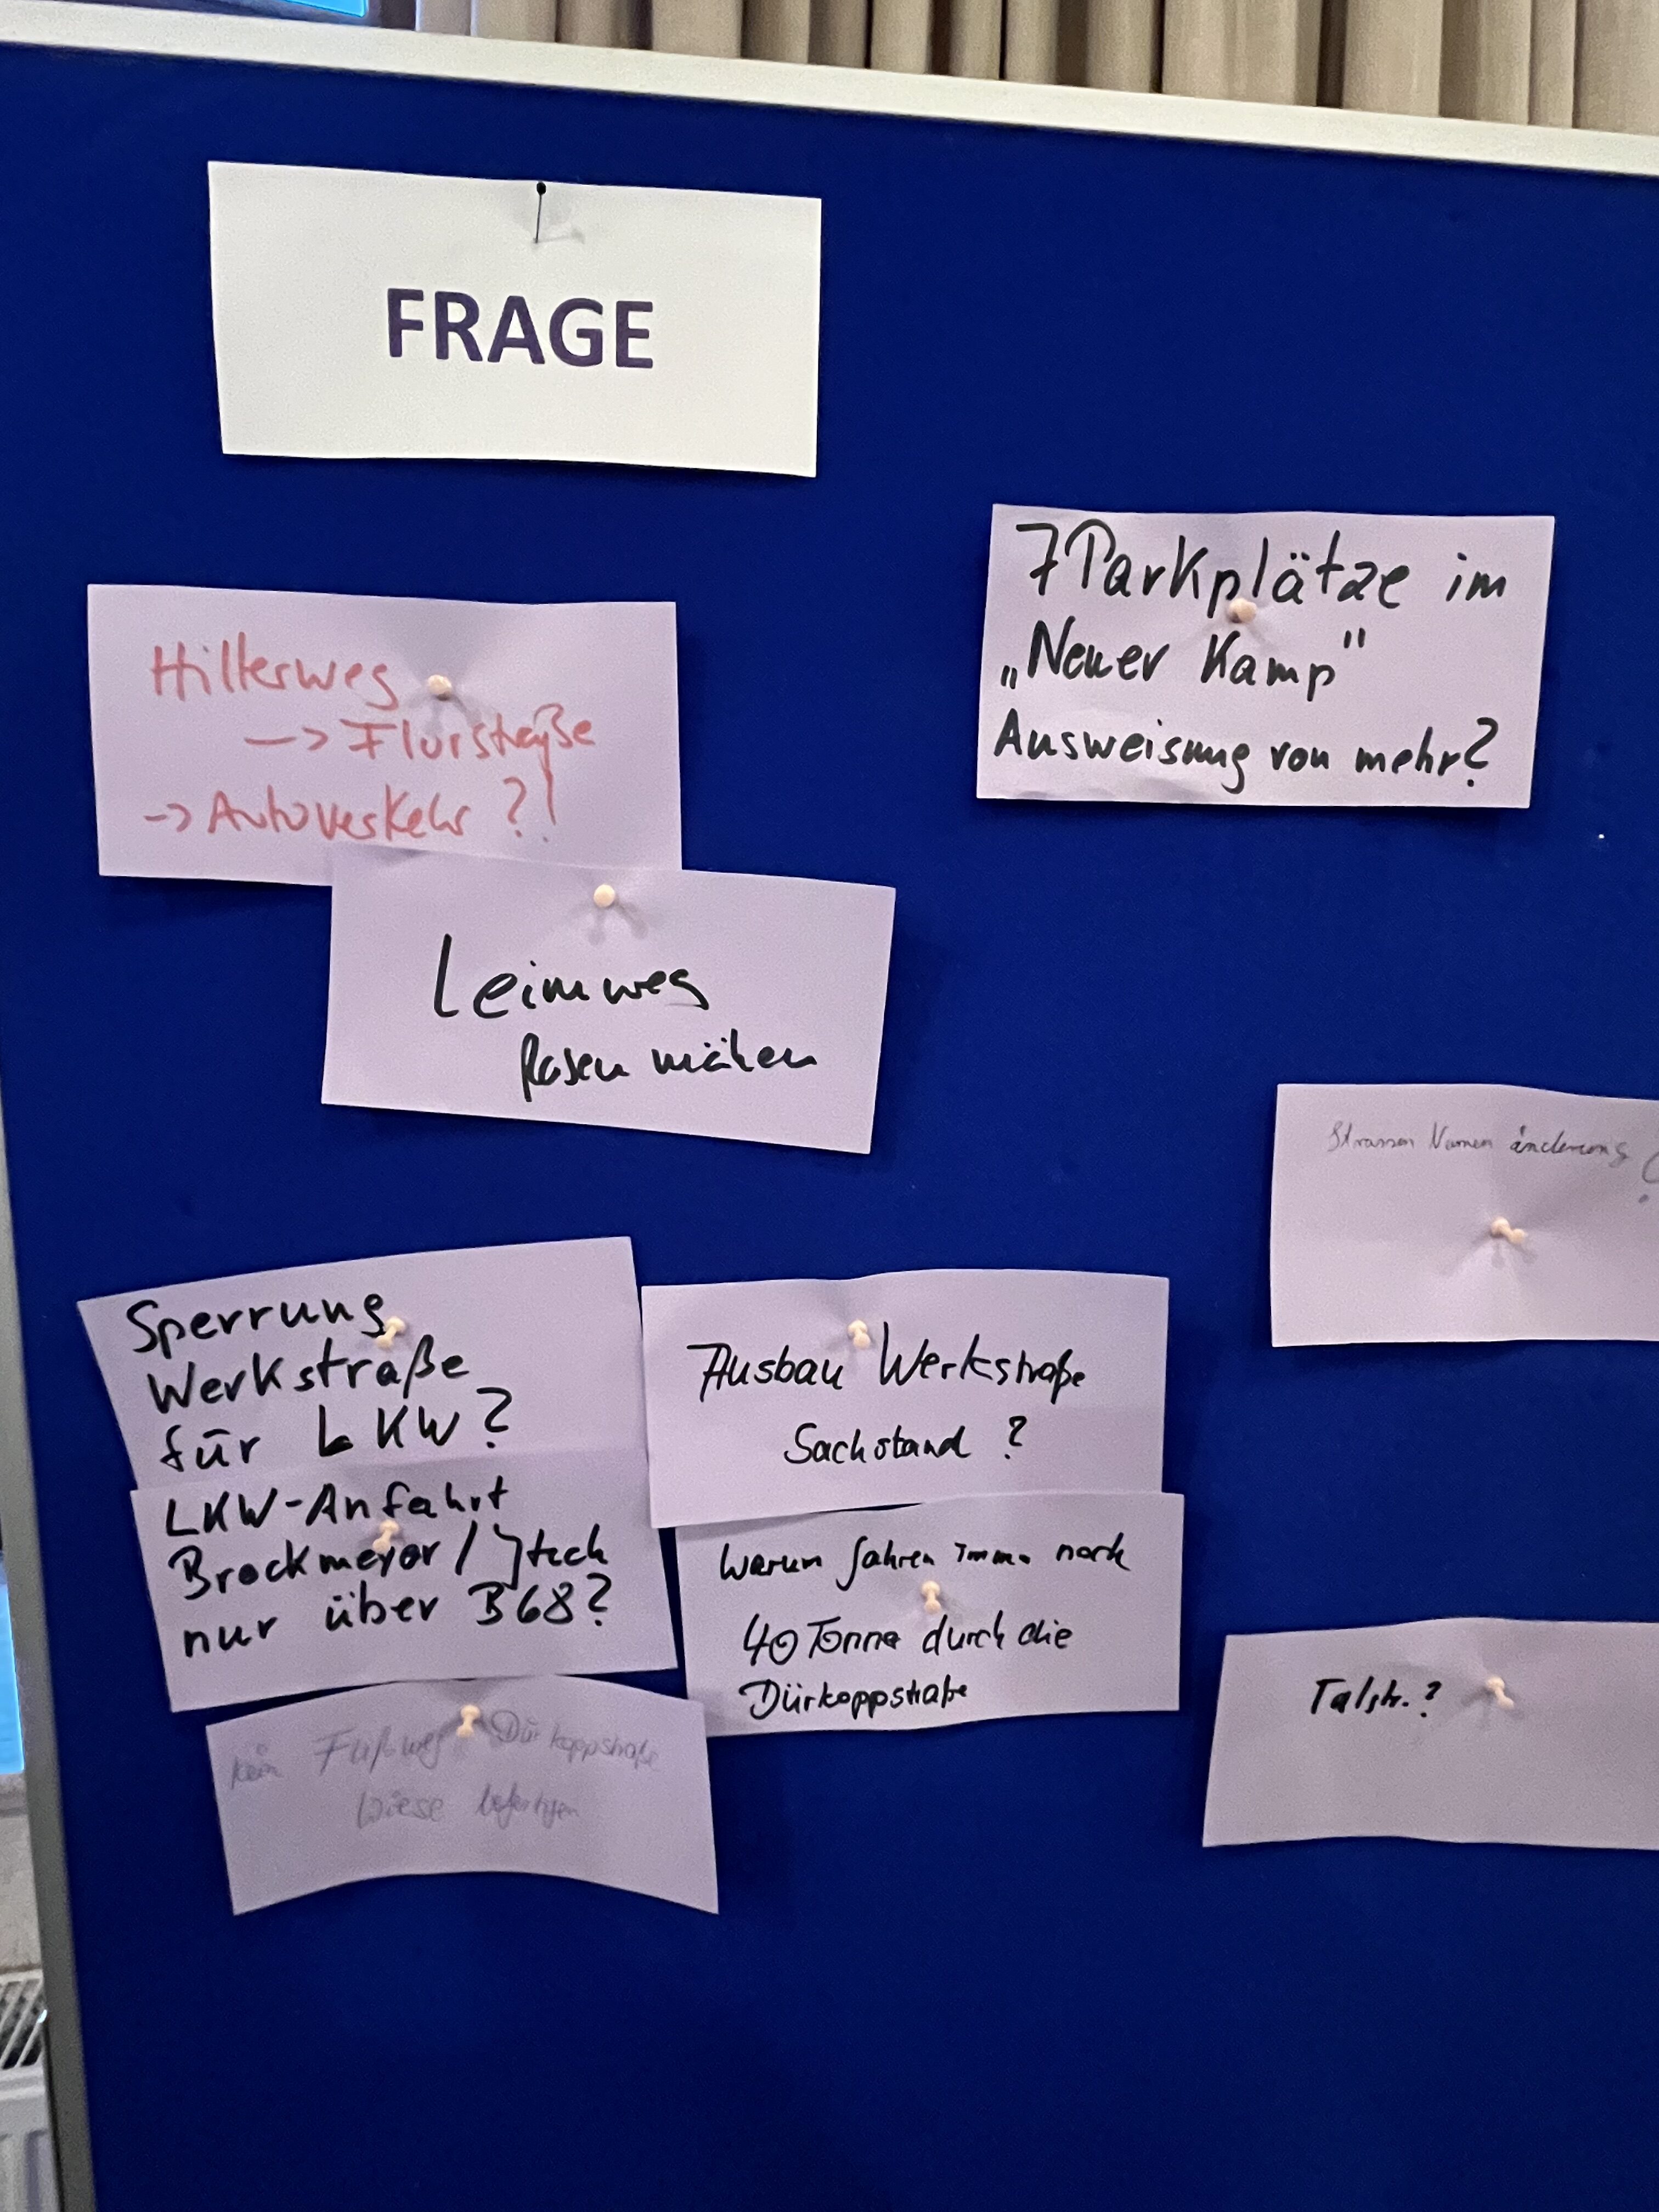 FRAGE
7 Parkplätze im
„Neuer Kamp"
Ausweisung von mehr?
Hilterweg
-> Flurstraße
-> Autoverkehr ?!
Leimweg
Rasen mähen
Strassen Namen änderung ?
Sperrung
Werkstraße
für LKW?
Ausbau Werkstraße
Sachstand ?
LKW-Anfahrt
Brockmeyer /
nur über B68?
Warum fahren immer noch
40 Tonne durch die
Dürkoppstraße
Talstr. ?
kein Fußweg Dürkoppstraße
Wiese befestigen